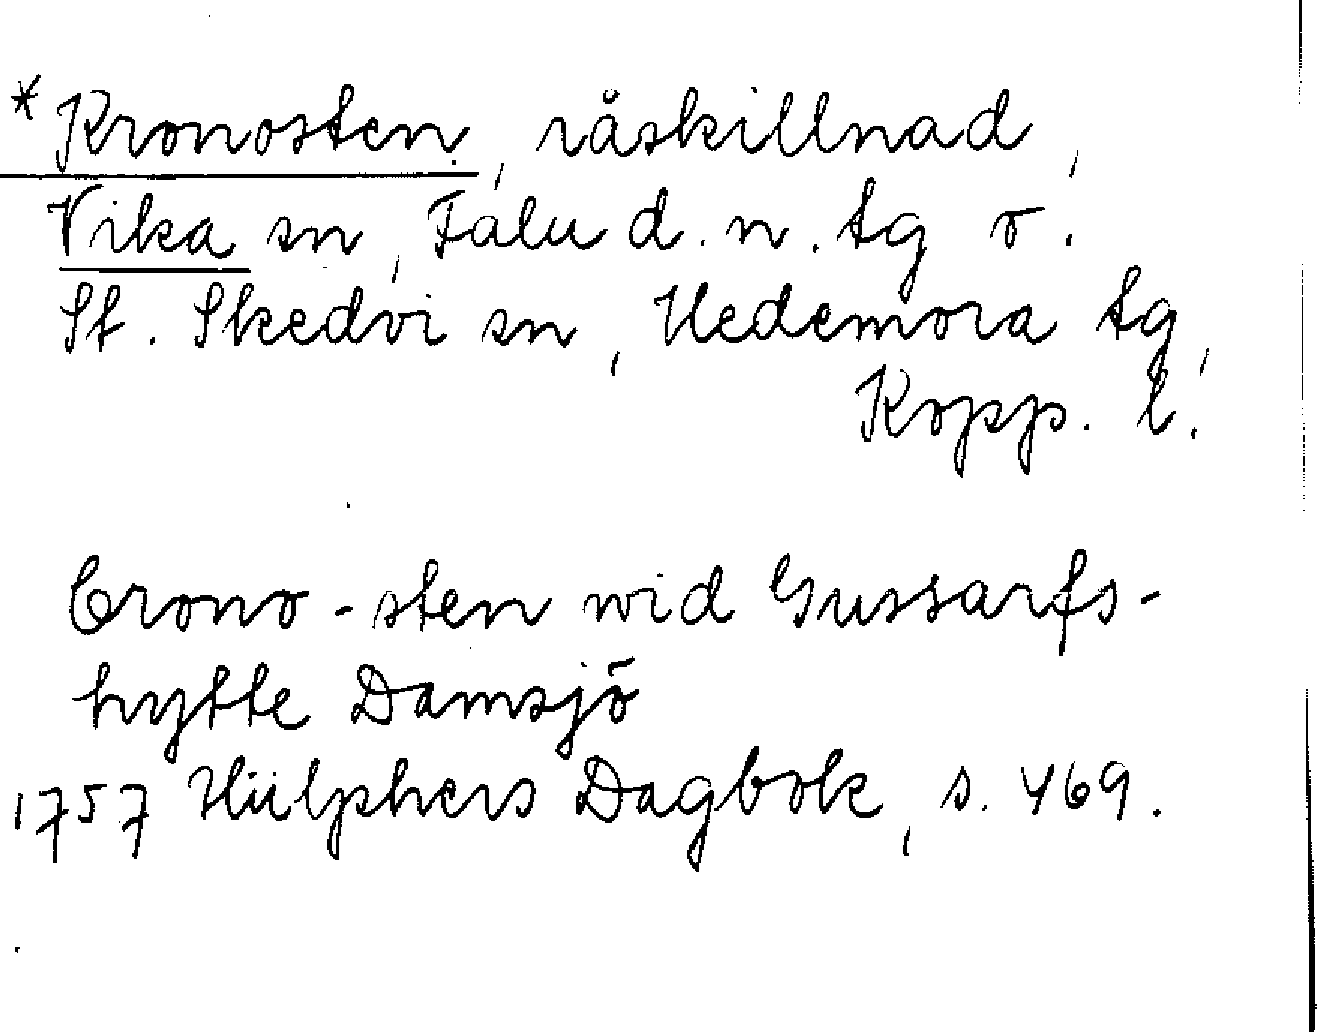 *Kronosten, råskillnad,
Vika sn, Falu d. n. tg o.
St. Skedvi sn, Hedemora tg,
Kopp. l.
Crono-sten wid Gussarfs-
hytte Damsjö
1757 Hülphers Dagbok, s. 469.